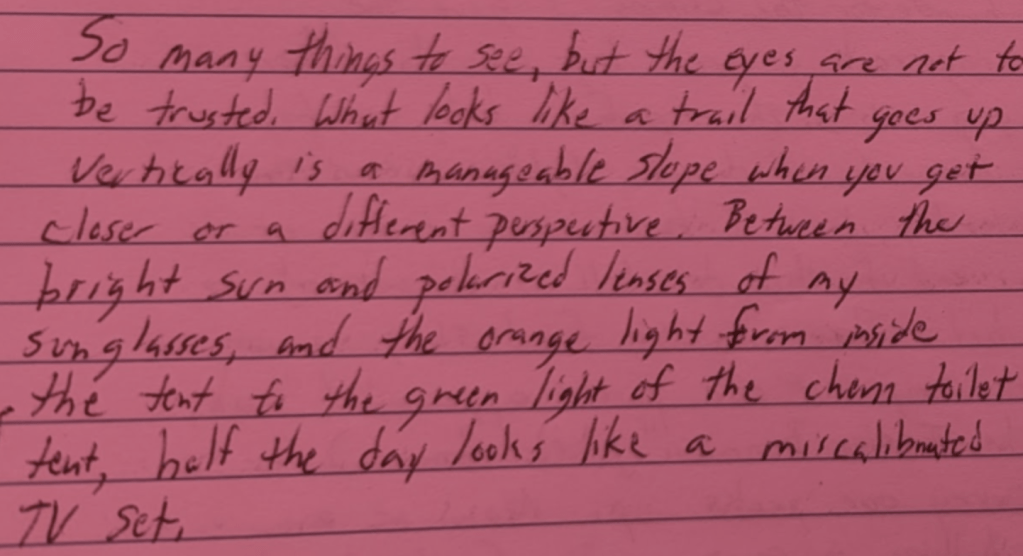 So many things to see, but the eyes are not to
be trusted. What looks like a trail that goes up
vertically is a manageable slope when you get
closer or a different perspective. Between the
bright sun and polarized lenses of my
sunglasses, and the orange light from inside
the tent to the green light of the chem toilet
tent, half the day looks like a miscalibrated
TV set.